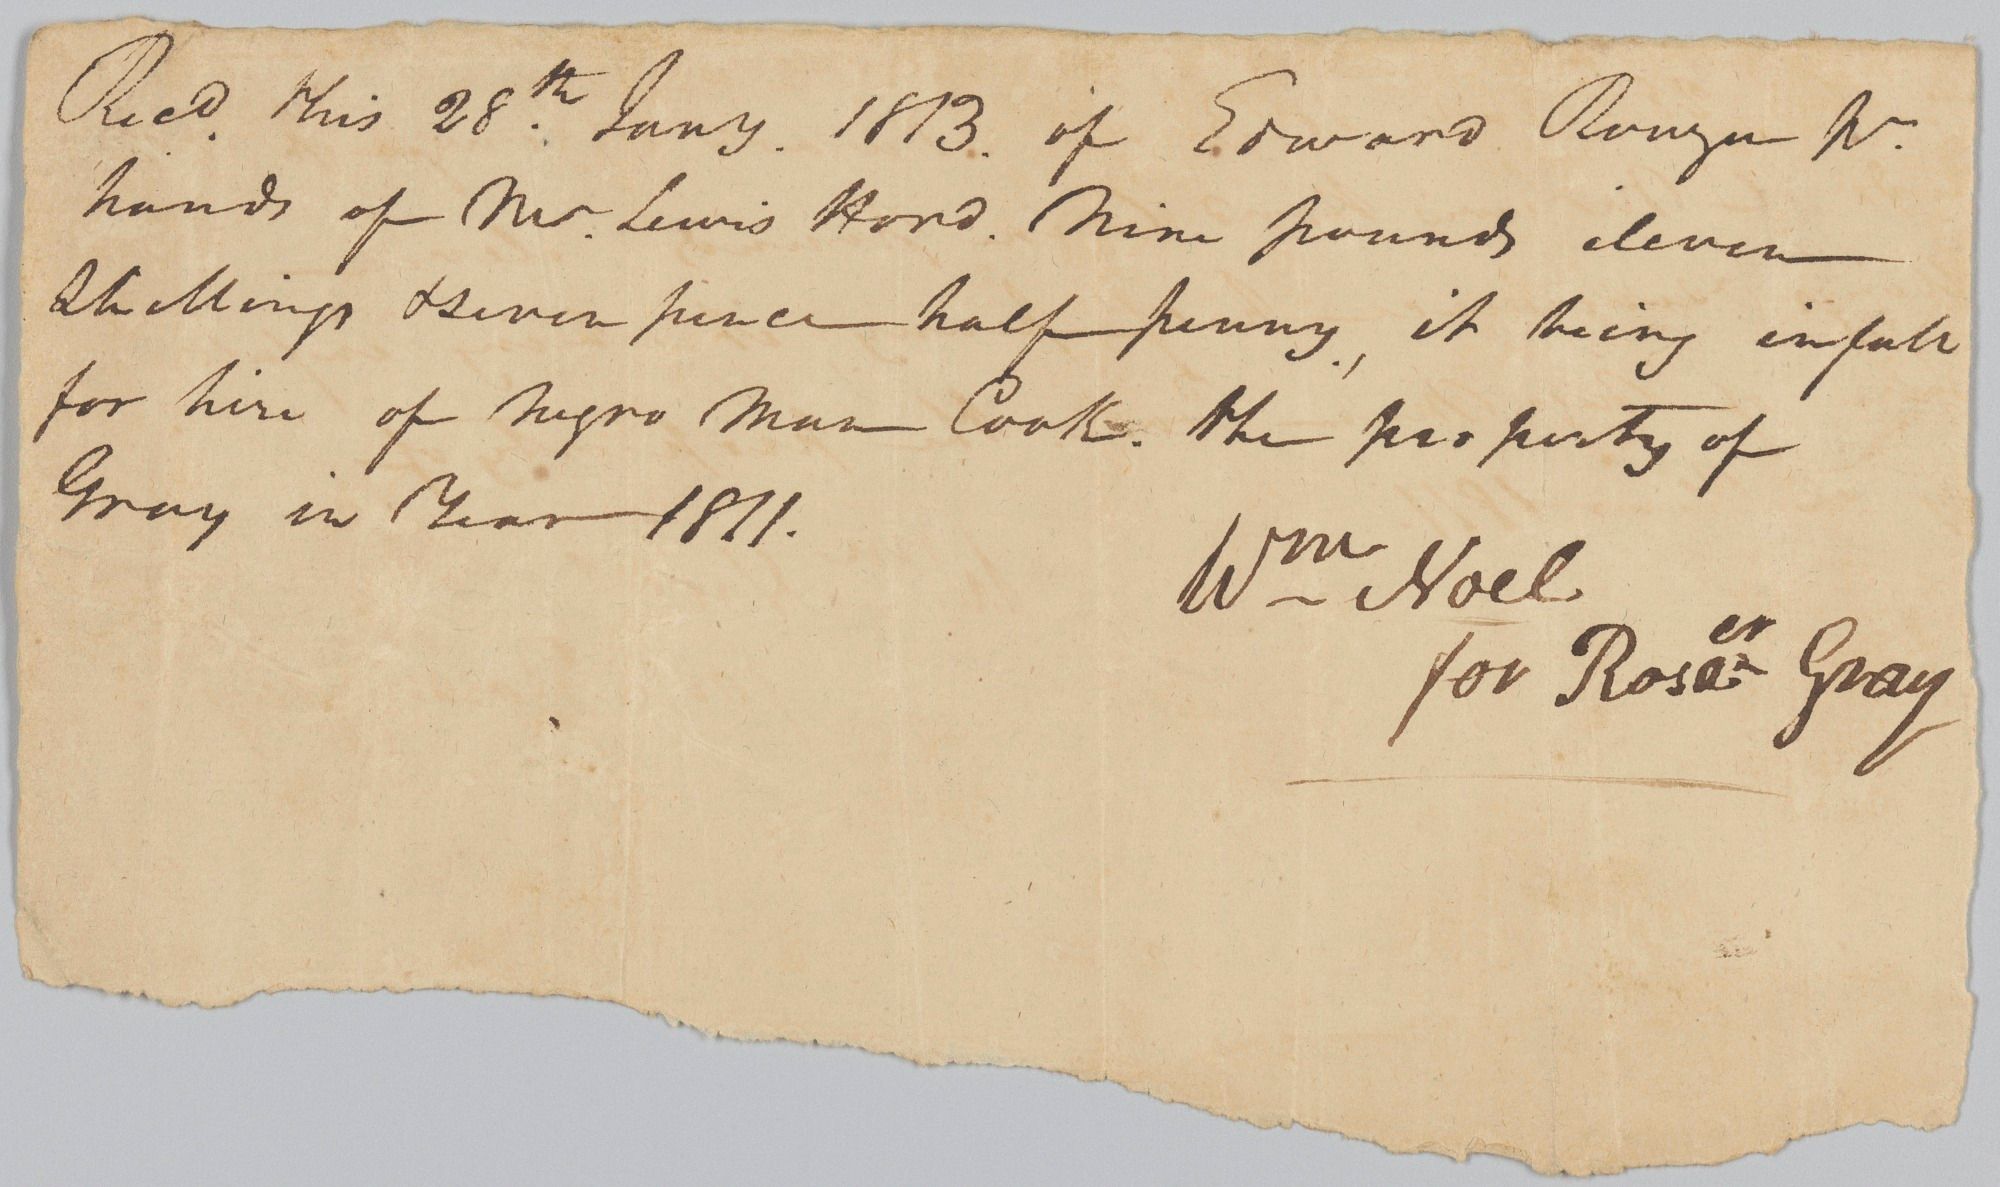 Recd. this 28th. Jany. 1813. of Edward Rouzee pr.
hands of Mr. Lewis Hord. Nine pounds eleven
Shillings & seven pence half penny, it being in full
for hire of Negro Man Cook. the property of
Gray in Year 1811.
Wm Noel
for Roser Gray